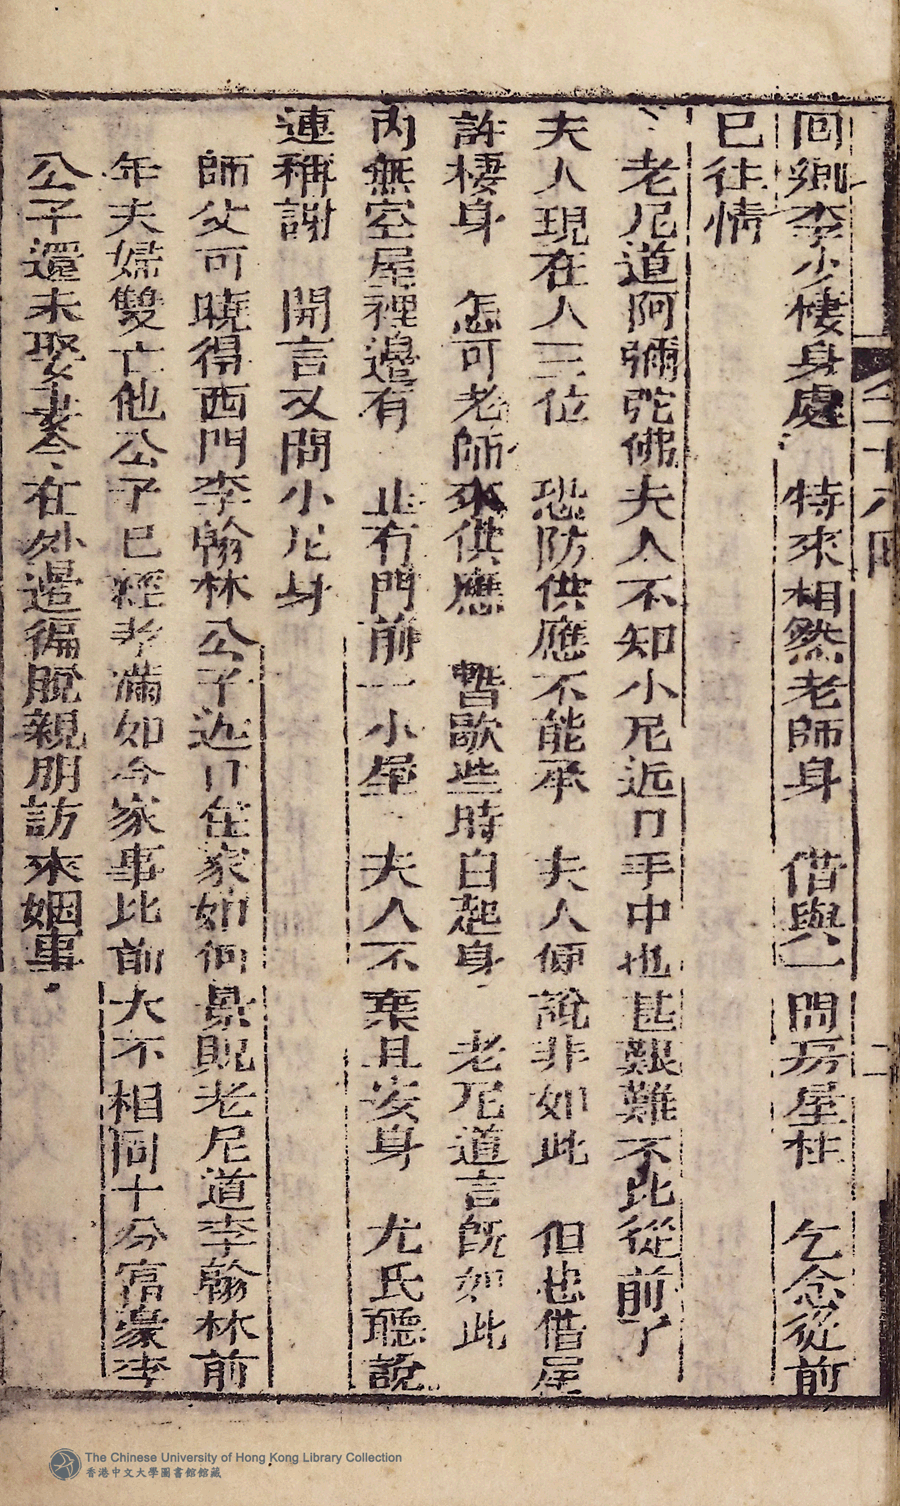 二十八回
二
回鄉李少棲身處　特來相然老師身　借與一間房屋柱　乞念從前
已往情
老尼道阿彌陀佛夫人不知小尼近日手中也甚艱難不比從前了
夫人現在人三位　恐防供應不能承　夫人便說非如此　但也借屋
許棲身　怎可老師來供應　暫歇些時自起身　老尼道言旣如此
內無空屋裡邊有　止有門前一小屋　夫人不棄且安身　尤氏聽說
連稱謝　開言又問小尼身
師父可曉得西門李翰林公子近日在家如何景況老尼道李翰林前
年夫婦雙亡他公子已經孝滿如今家事比前大不相同十分富豪李
公子還未娶妻今在外邊徧脫親朋訪來姻事
The Chinese University of Hong Kong Library Collection
香港中文大學圖書館館藏